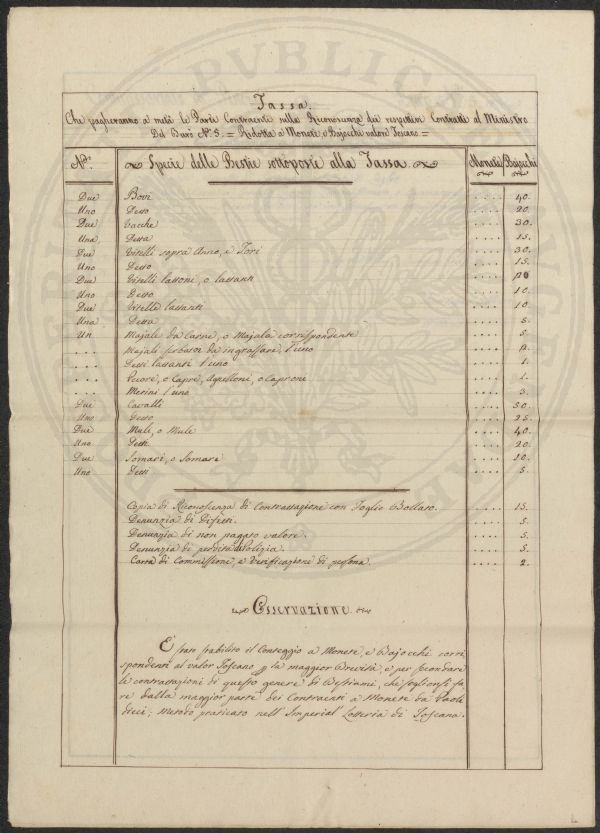 PVBLICA
Tassa.
Che pagheranno a metà le Parti Contraenti sulla Riconoscenza dei respettivi Contratti al Ministro
Del Burò N.° 5. = Ridotta a Monete, e Bajocchi valore Toscano =
N.° Specie delle Bestie sottoposte alla Tassa. Monete Bajocchi
Due Bovi .... 40.
Uno Detto .... 20.
Due Vacche .... 30.
Una Detta .... 15.
Due Vitelli sopra Anno, e Tori .... 30.
Uno Detto .... 15.
Due Vitelli lattoni, o lattanti ....
Uno Detto .... 10.
Due Vitelle lattanti .... 10.
Una Detta .... 5.
Un Majale da Carne, o Majala corrispondente .... 5.
... Majali da ingrassare, l'uno ....
... Detti lattanti l'uno .... 1.
... Pecore, o Capre, Agnelloni, o Caprone .... 1.
... Merini l'uno .... 3.
Due Cavalli .... 50.
Uno Detto .... 25.
Due Muli, o Mule .... 40.
Uno Detti .... 20.
Due Somari, o Somare .... 10.
Uno Detti .... 5.
Copia di Riconoscenza di Contrattazione con Foglio Bollato. .... 15.
Denunzia di Difetti. .... 5.
Denunzia di non pagato valore. .... 5.
Denunzia di perduta Polizia. .... 5.
Carta di Commissione, e Verificazione di persona. .... 2.
Osservazione.
E' stato stabilito il Conteggio a Monete, e Bajocchi corri
spondenti al valor Toscano p la maggior Brevità, e per secondare
le contrattazioni di questo genere di Bestiami, che soglionsi fa,
re dalla maggior parte dei Contraenti a Monete da Paoli
dieci; Metodo praticato nell'Imperial Lotteria di Toscana.